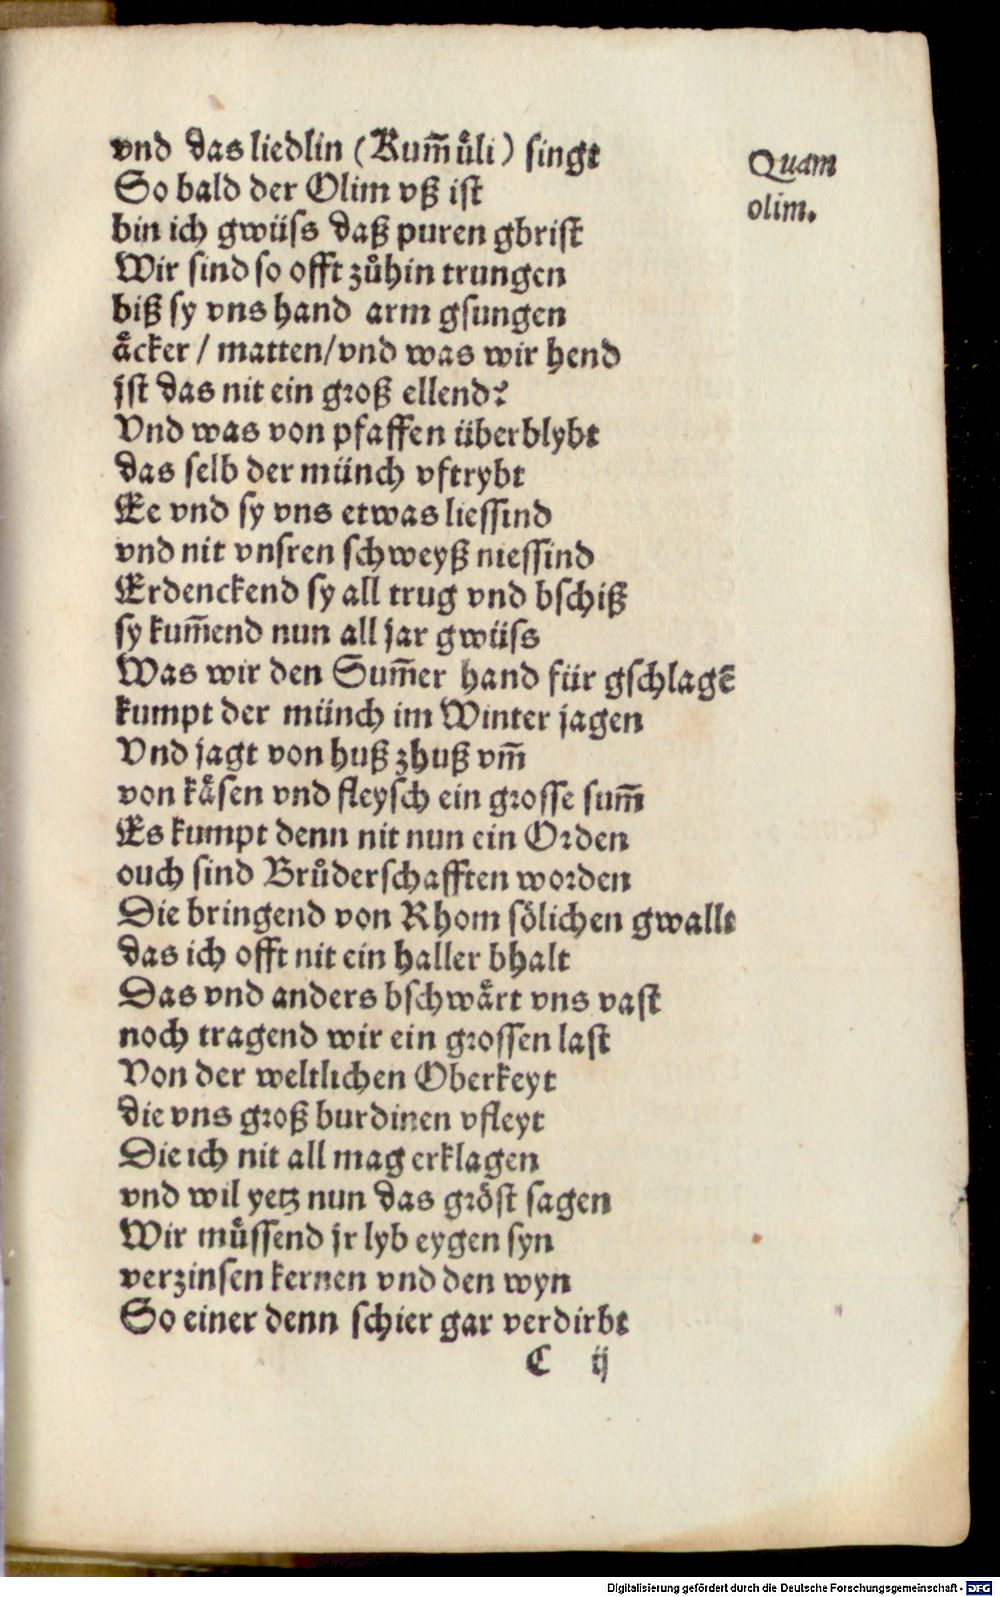 vnd das liedlin (Kum̃uͤli) singt
So bald der Olim vß ist
bin ich gwüss daß puren gbrist
Wir sind so offt zuͦhin trungen
biß sy vns hand arm gsungen
aͤcker / matten/vnd was wir hend
jst das nit ein groß ellend?
Vnd was von pfaffen überblybt
das selb der münch vftrybt
Ee vnd sy vns etwas liessind
vnd nit vnsren schweyß niessind
Erdenckend sy all trug vnd bschiß
sy kum̃end nun all jar gwüss
Was wir den Sum̃er hand für gschlagẽ
kumpt der münch im Winter jagen
Vnd jagt von huß zhuß vm̃
von kaͤsen vnd fleysch ein grosse sum̃
Es kumpt denn nit nun ein Orden
ouch sind Bruͦderschafften worden
Die bringend von Rhom soͤlichen gwallt
das ich offt nit ein haller bhalt
Das vnd anders bschwaͤrt vns vast
noch tragend wir ein grossen last
Von der weltlichen Oberkeyt
die vns groß burdinen vfleyt
Die ich nit all mag erklagen
vnd wil yetz nun das groͤst sagen
Wir muͤssend jr lyb eygen syn
verzinsen kernen vnd den wyn
So einer denn schier gar verdirbt
C ij
Quam
olim.
Digitalisierung gefördert durch die Deutsche Forschungsgemeinschaft - DFG